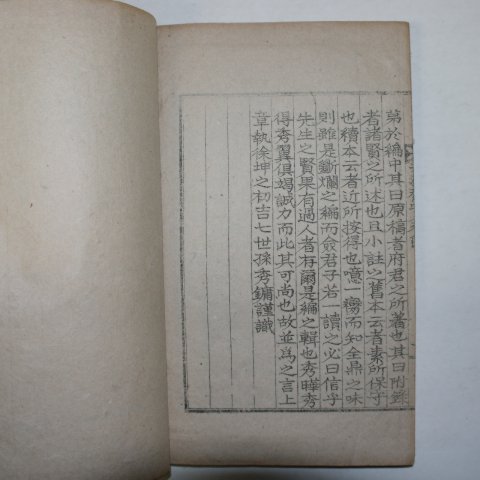 第於編中其曰原稿者府君之所著也其曰附錄
者諸賢之所述也且小註之舊本云者素所保守
也續本云者近所按得也噫一臠而知全鼎之味
則雖是斷爛之編而僉君子若一讀之必曰信乎
先生之賢果有過人者存爾是編之輯也秀曄秀
得秀翼俱竭誠力而此其可尚也故並爲之言上
章執徐坤之初吉七世孫秀鏞謹識